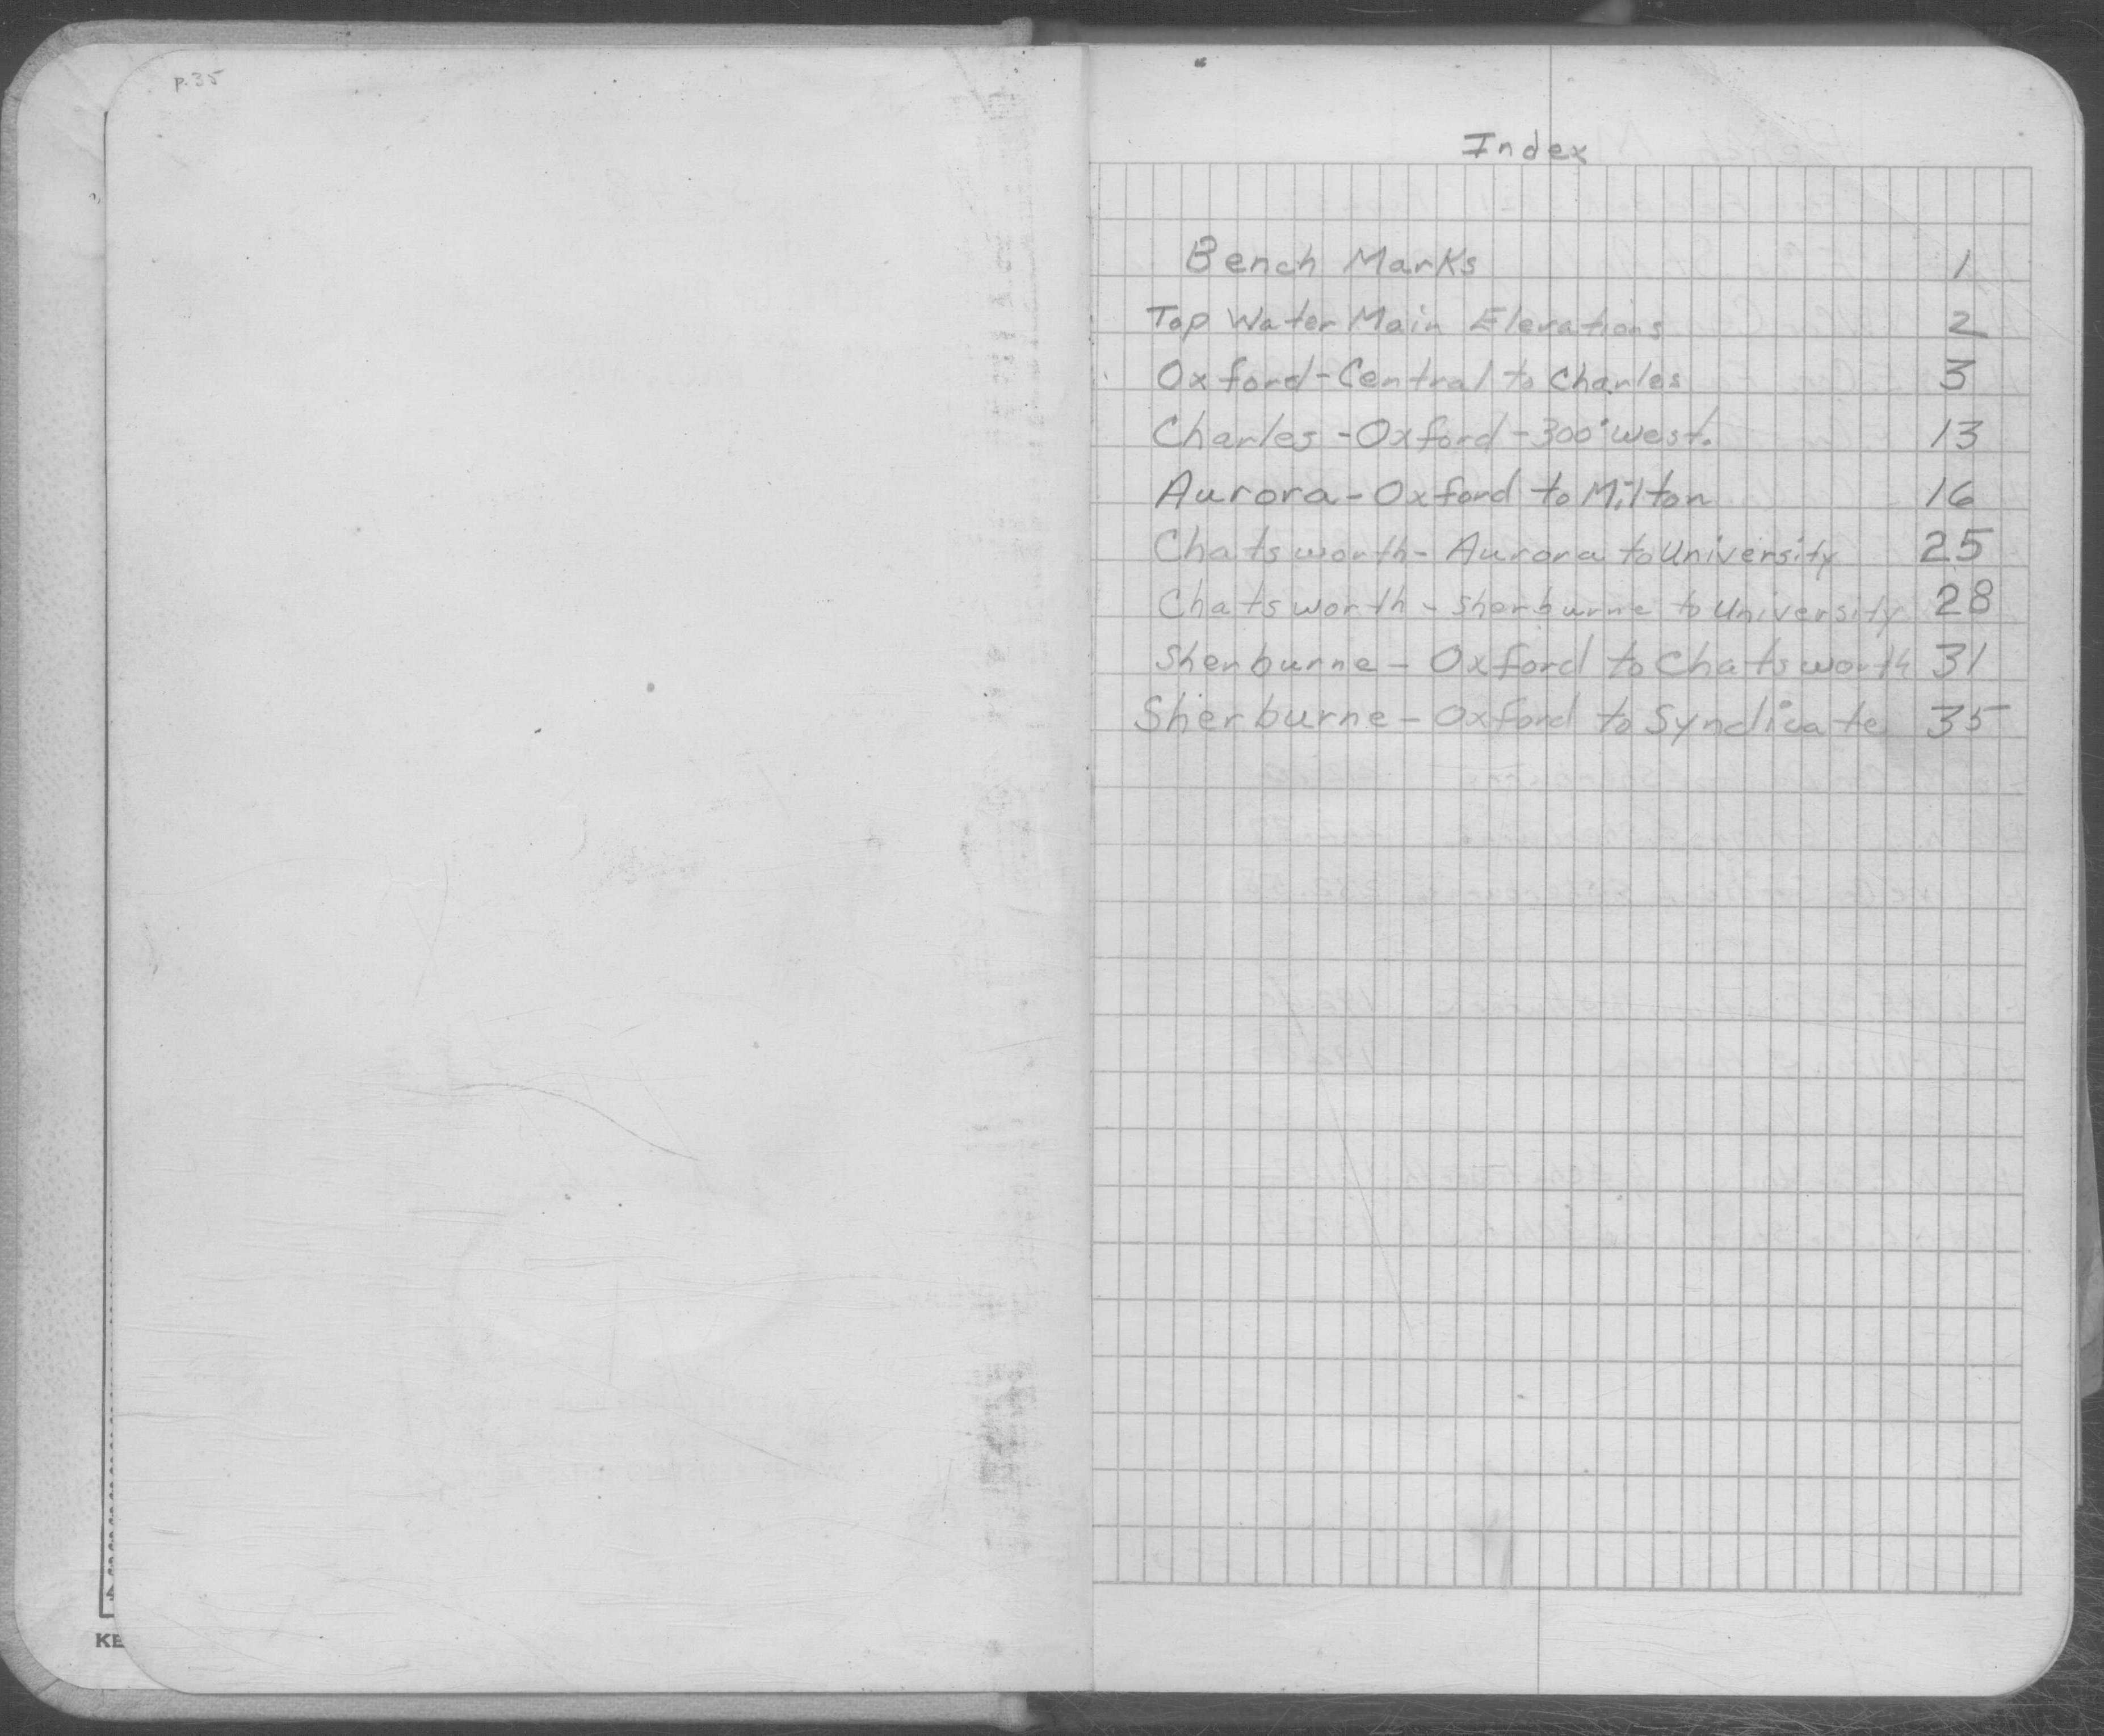 p.35
Index
Bench Marks 1
Top Water Main Elevations 2
Oxford-Central to Charles 3
Charles-Oxford-300' west. 13
Aurora-Oxford to Milton 16
Chatsworth-Aurora to University 25
Chatsworth-Sherburne to University 28
Sherburne-Oxford to Chatsworth 31
Sherburne-Oxford to Syndicate 35
KE